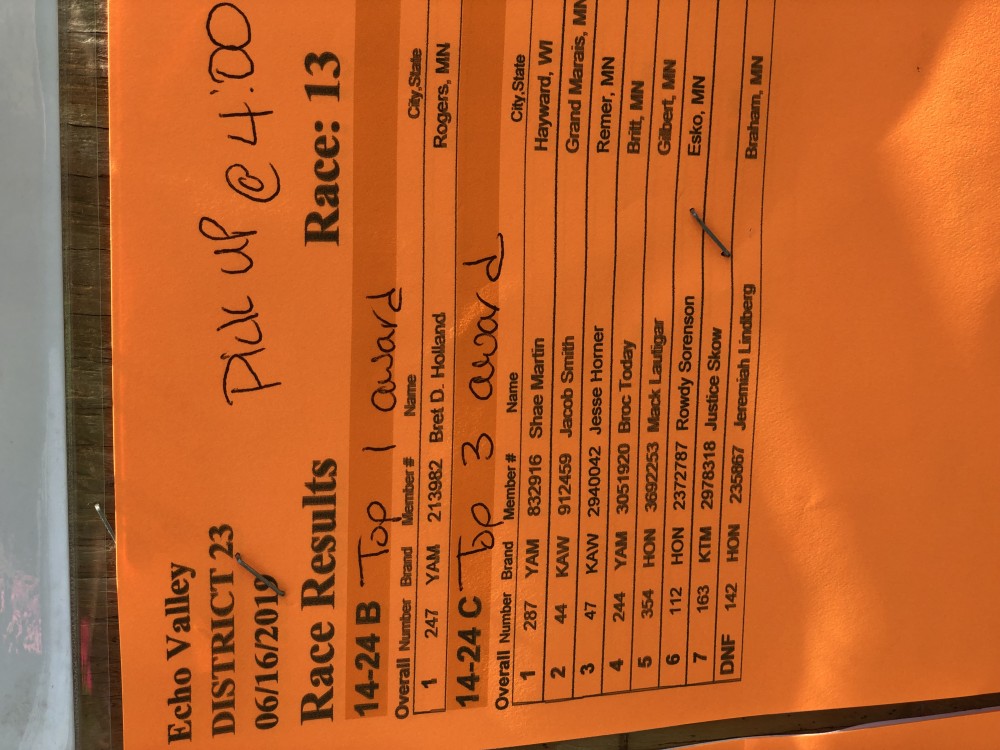 Echo Valley
DISTRICT 23
06/16/2018
PICK UP @ 4:00
Race Results Race: 13
14-24 B Top 1 award
Overall Number Brand Member# Name City,State
1 247 YAM 213982 Bret D. Holland Rogers, MN
14-24 C Top 3 award
Overall Number Brand Member# Name City,State
1 287 YAM 832916 Shae Martin Hayward, WI
2 44 KAW 912459 Jacob Smith Grand Marais, MN
3 47 KAW 2940042 Jesse Horner Remer, MN
4 244 YAM 3051920 Broc Today Britt, MN
5 354 HON 3692253 Mack Lautigar Gilbert, MN
6 112 HON 2372787 Rowdy Sorenson Esko, MN
7 163 KTM 2978318 Justice Skow
DNF 142 HON 235867 Jeremiah Lindberg Braham, MN